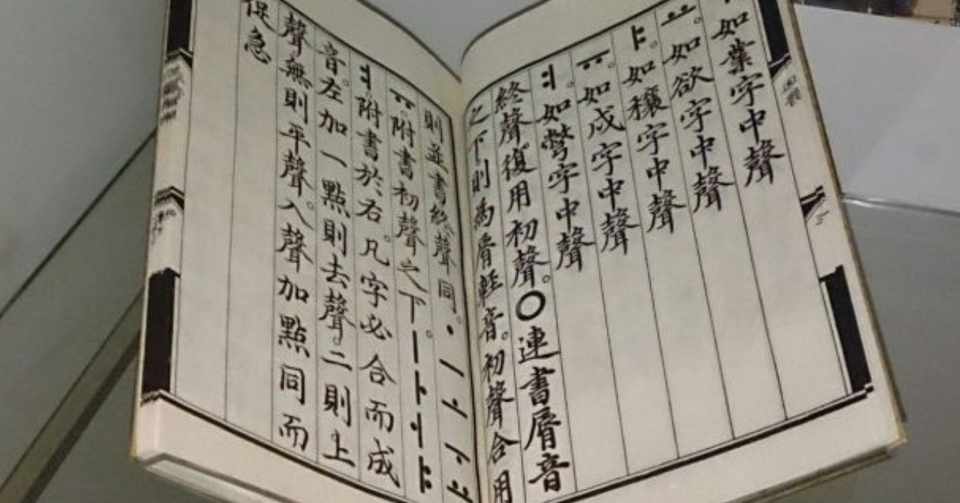 如業字中聲
ㅛ。如欲字中聲
ㅑ。如穰字中聲
ㅠ。如戌字中聲
ㅕ。如彆字中聲
終聲復用初聲。○連書脣音
之下則為脣輕音。初聲合用
則並書終聲同。ㆍㅡㅗㅜㅛ
ㅠ附書初聲之下。ㅣㅏㅓㅑ
ㅕ附書於右。凡字必合而成
音。左加一點則去聲。二則上
聲無則平聲。入聲加點同而
促急